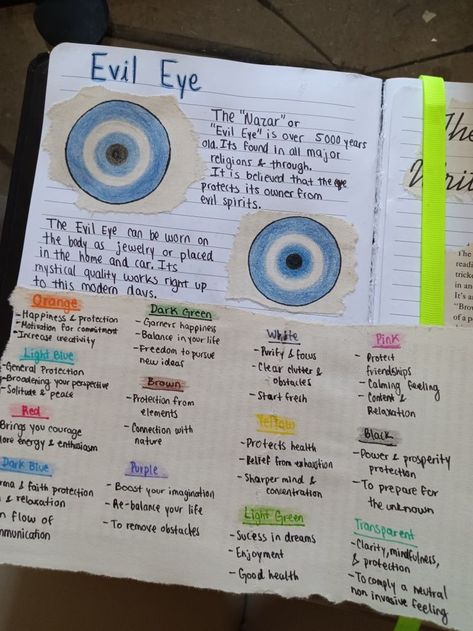 Evil Eye
The "Nazar" or
"Evil Eye" is over 5000 years
old. Its found in all major
religions & through.
It is believed that the eye
protects its owner from
evil spirits.
The Evil Eye can be worn on
the body as jewelry or placed
in the home and car. Its
mystical quality works right up
to this modern days.
Orange
- Happiness & protection
- Motivation for commitment
- Increase creativity
Light Blue
- General Protection
- Broadening your perspective
- Solitude & peace
Red
Brings you courage
more energy & enthusiasm
Dark Blue
& faith protection
& relaxation
flow of
Dark Green
- Garners happiness
- Balance in your life
- Freedom to pursue
new ideas
Brown
- Protection from
elements
- Connection with
nature
Purple
- Boost your imagination
- Re-balance your life
- To remove obstacles
White
- Purify & focus
- Clear clutter &
obstacles
- Start fresh
Yellow
- Protects health
- Relief from exhaustion
- Sharper mind &
concentration
Light Green
- Sucess in dreams
- Enjoyment
- Good health
Pink
- Protect
friendships
- Calming feeling
- Content &
Relaxation
Black
- Power & prosperity
protection
- To prepare for
the unknown
Transparent
- Clarity, mindfulness,
& protection
- To comply a neutral
non invasive feeling
The
Writ
The
readi
trick
in an
It's a
"Brow
of a p